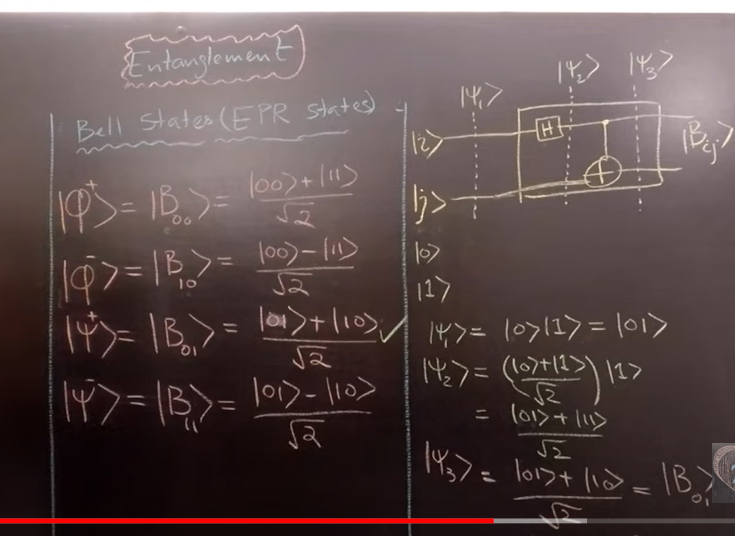 Entanglement
Bell States (EPR states)
|φ⁺⟩ = |B₀₀⟩ = (|00⟩+|11⟩)/√2
|φ⁻⟩ = |B₁₀⟩ = (|00⟩-|11⟩)/√2
|Ψ⁺⟩ = |B₀₁⟩ = (|01⟩+|10⟩)/√2 ✓
|Ψ⁻⟩ = |B₁₁⟩ = (|01⟩-|10⟩)/√2
|Ψ₁⟩ |Ψ₂⟩ |Ψ₃⟩
|i⟩ H |B_ij⟩
|j⟩
|0⟩
|1⟩
|Ψ₁⟩ = |0⟩|1⟩ = |01⟩
|Ψ₂⟩ = ((|0⟩+|1⟩)/√2)|1⟩
= (|01⟩+|11⟩)/√2
|Ψ₃⟩ = (|01⟩+|10⟩)/√2 = |B₀₁⟩